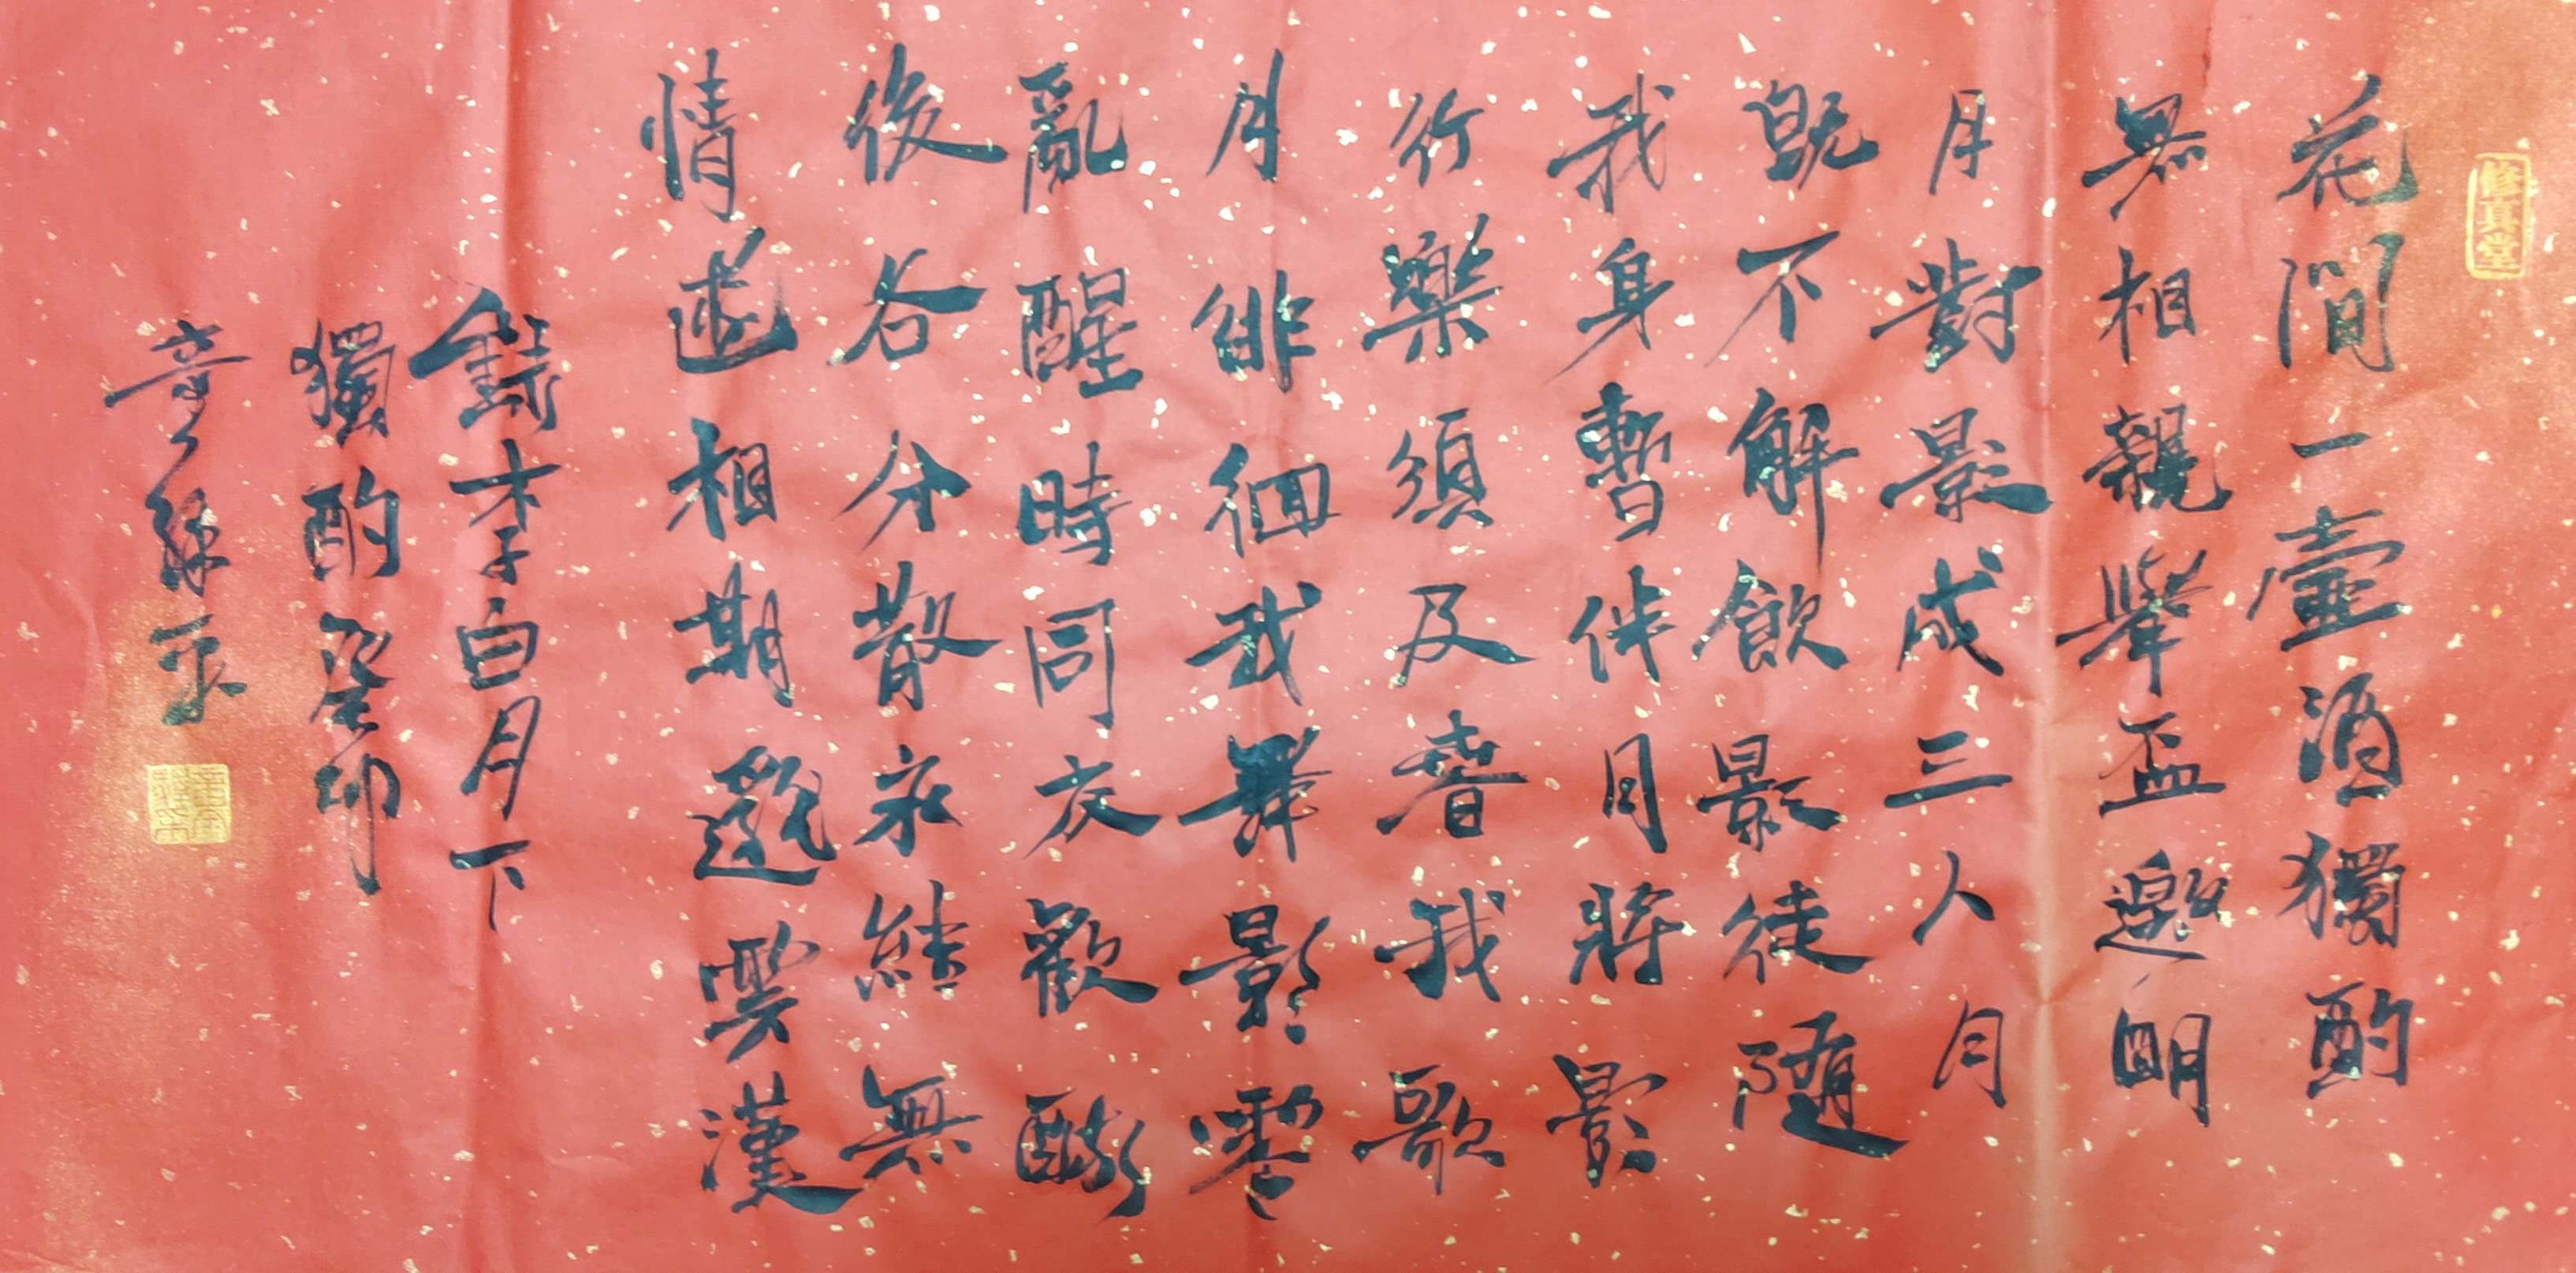 修真堂
花間一壺酒獨酌
無相親舉盃邀明
月對影成三人月
既不解飲影徒隨
我身暫伴月將影
行樂須及春我歌
月徘徊我舞影零
亂醒時同交歡醉
後各分散永結無
情遊相期邈雲漢
錄李白月下
獨酌癸卯